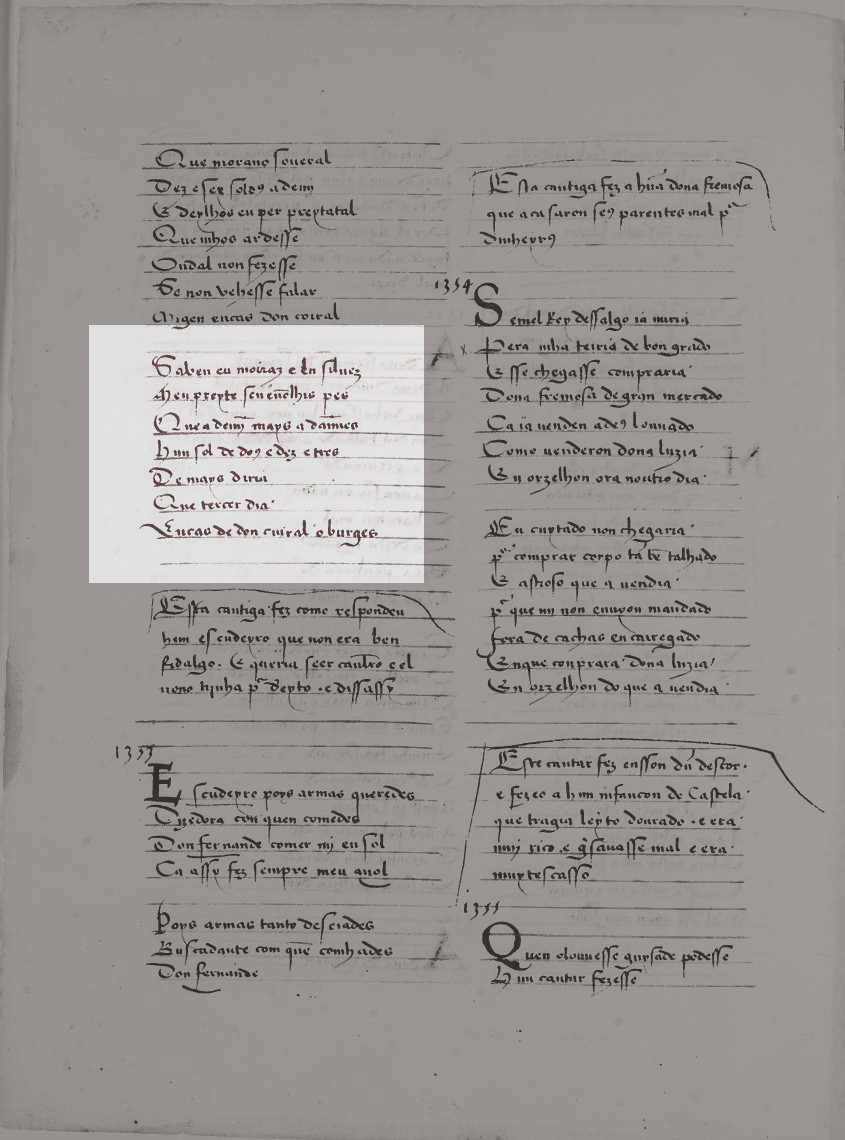 Que morano soueral
Dez e sex soldꝯ ademj
E deylhos eu per preytatal
Que mhos ardesse
Ou dal non fezesse
Se non vehesse falar
Migen encas don coiral
Saben eu moiraz e
Meu preyte
Que a demj mays a
hun sol de doꝯ e dez e tres
De mays diria
Que tercer dia
Encas de don cuiral o burges
Esta cantiga fez como respondeu
hum escudeyro que non era ben
fidalgo. E queria seer caualro e el
nono tijnha pᵃ e dissassy
1353
Escudeyro poys armas queredes
con quen comedes
Don fernande comer mj eu sol
Ca assy fez sempre meu auol
Poys armas tanto deseiades
Buscadante com quē comhades
Don fernande
Esta cantiga fez a hūa dona fremosa
que a casaron seꝯ parentes mal pʳ
dinheyrꝯ
1354
Semel Rey dessalgo ia
Pera mha terria de bon grado
E sse chegasse compraria
Dona fremosa de gran mercado
Ca ia uenden adeꝯ louuado
Como uenderon dona luzia
En orzelhon ora noutro dia
En cuytado non chegaria
pʳ comprar corpo tā bē talhado
E astroso que a uendia
pʳ que mi non enuyou mandado
fora de cachas encarregado
En que conprara dona luzia
En orzelhon do que a uendia
Este cantar fez ensson dū descor.
e fezeo a hun infancon de Castela
que tragia leyto dourado. e era
muj rico. e gⁱsauasse mal e era
muytescasso
1355
Quen oiouuesse guysade podesse
Hun cantar fezesse